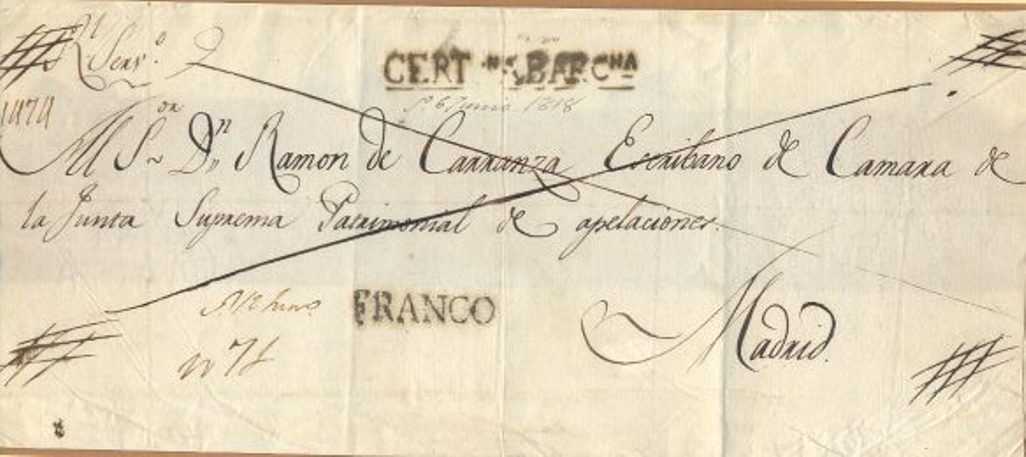 Rl Servo
CERT BARCNA
6 Junio 1818
Al Sor Dn Ramon de Carranza Escribano de Camara de
la Junta Suprema Patrimonial de apelaciones.
FRANCO
Madrid.
no 71